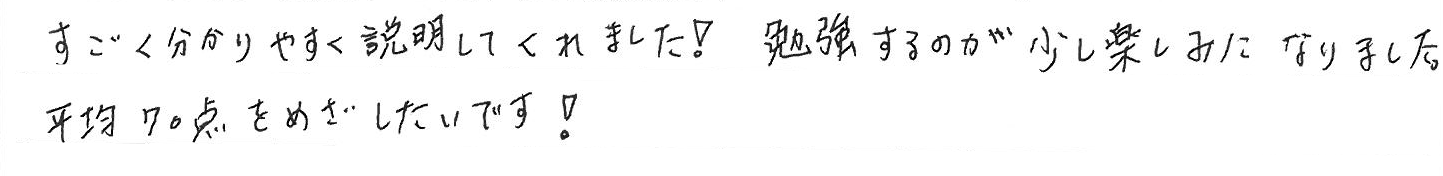 すごく分かりやすく説明してくれました! 勉強するのが少し楽しみになりました。
平均70点をめざしたいです!